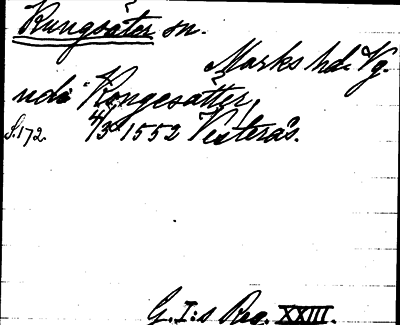 Kungsäter sn.
Marks hd. Vg.
udi Kongesätter,
S. 172. 4/3 1552 Vesterås.
G. I:s Reg. XXIII.